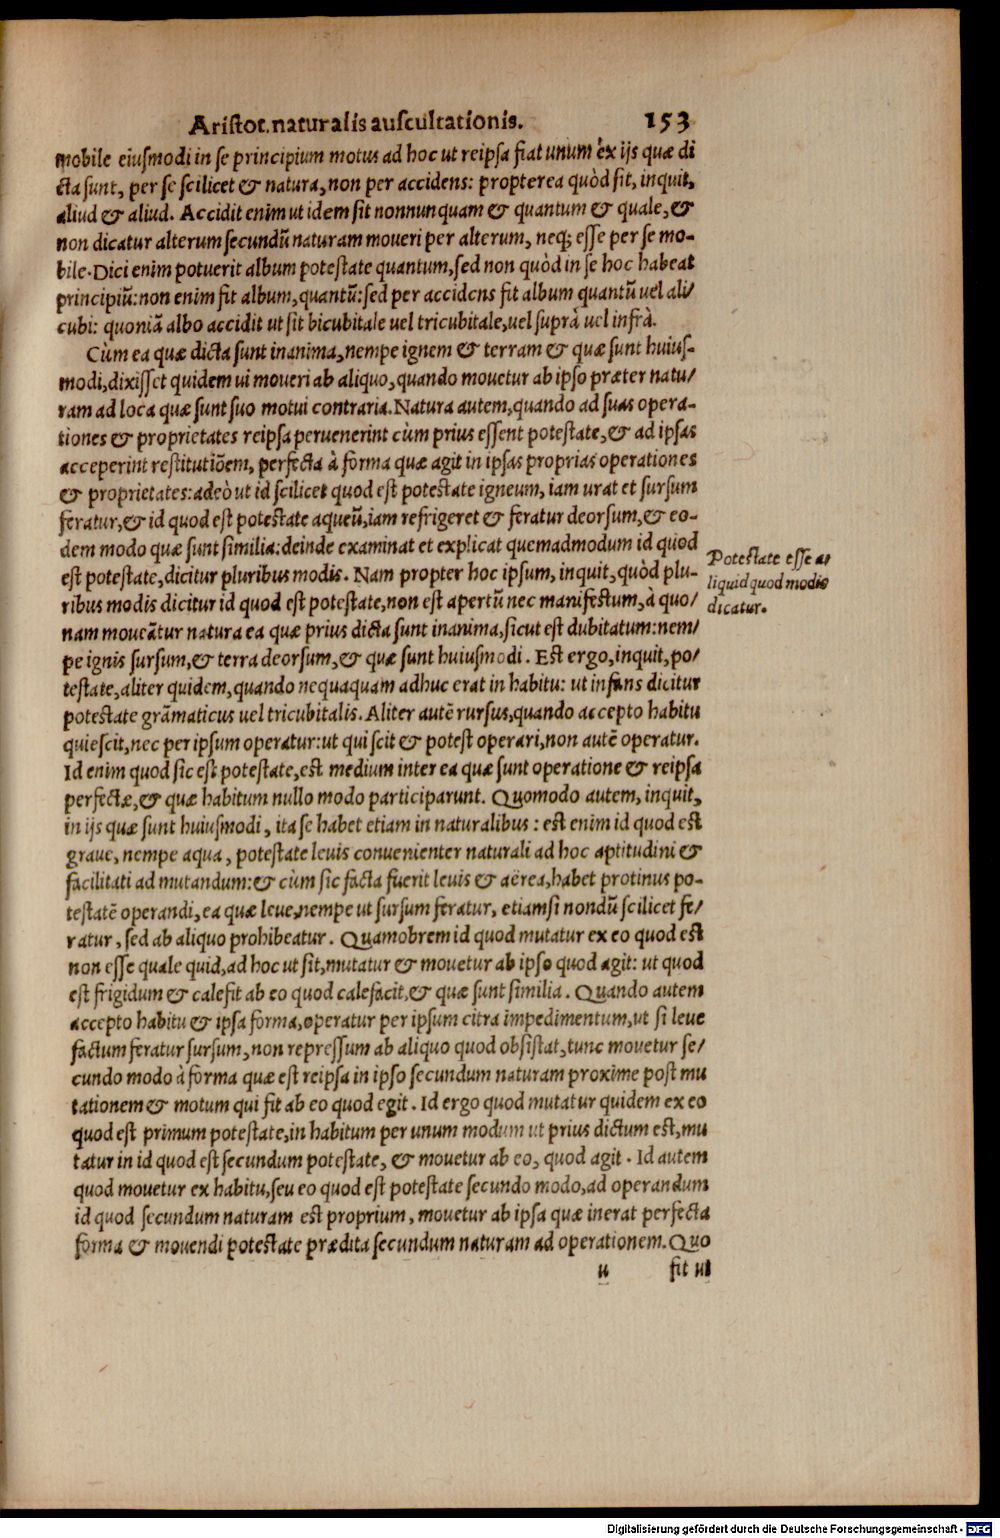 Aristot. naturalis auscultationis. 153
mobile eiusmodi in se principium motus ad hoc ut reipsa fiat unum èx ijs quæ di
cta sunt, per se scilicet & natura, non per accidens: propterea quòd sit, inquit,
aliud & aliud. Accidit enim ut idem sit nonnunquam & quantum & quale, &
non dicatur alterum secundũ naturam moueri per alterum, neq; esse per se mo-
bile. Dici enim potuerit album potestate quantum, sed non quòd in se hoc habeat
principiũ: non enim fit album, quantũ: sed per accidens fit album quantũ uel ali/
cubi: quoniã albo accidit ut sit bicubitale uel tricubitale, uel suprà uel infrà.
Cùm ea quæ dicta sunt inanima, nempe ignem & terram & quæ sunt huius-
modi, dixisset quidem ui moueri ab aliquo, quando mouetur ab ipso præter natu/
ram ad loca quæ sunt suo motui contraria. Natura autem, quando ad suas opera-
tiones & proprietates reipsa peruenerint cùm prius essent potestate, & ad ipsas
acceperint restitutiõem, perfecta à forma quæ agit in ipsas proprias operationes
& proprietates: adeò ut id scilicet quod est potestate igneum, iam urat et sursum
feratur, & id quod est potestate aqueũ, iam refrigeret & feratur deorsum, & eo-
dem modo quæ sunt similia: deinde examinat et explicat quemadmodum id quod
est potestate, dicitur pluribus modis. Nam propter hoc ipsum, inquit, quòd plu-
ribus modis dicitur id quod est potestate, non est apertũ nec manifestum, à quo/
nam moueãtur natura ea quæ prius dicta sunt inanima, sicut est dubitatum: nem/
pe ignis sursum, & terra deorsum, & quæ sunt huiusmodi. Est ergo, inquit, po/
testate, aliter quidem, quando nequaquam adhuc erat in habitu: ut infans dicitur
potestate grãmaticus uel tricubitalis. Aliter autẽ rursus, quando accepto habitu
quiescit, nec per ipsum operatur: ut qui scit & potest operari, non autẽ operatur.
Id enim quod sic est potestate, est medium inter ea quæ sunt operatione & reipsa
perfectæ, & quæ habitum nullo modo participarunt. Quomodo autem, inquit,
in ijs quæ sunt huiusmodi, ita se habet etiam in naturalibus: est enim id quod est
graue, nempe aqua, potestate leuis conuenienter naturali ad hoc aptitudini &
facilitati ad mutandum: & cùm sic facta fuerit leuis & aërea, habet protinus po-
testatẽ operandi, ea quæ leue, nempe ut sursum feratur, etiamsi nondũ scilicet fe/
ratur, sed ab aliquo prohibeatur. Quamobrem id quod mutatur ex eo quod est
non esse quale quid, ad hoc ut sit, mutatur & mouetur ab ipso quod agit: ut quod
est frigidum & calefit ab eo quod calefacit, & quæ sunt similia. Quando autem
accepto habitu & ipsa forma, operatur per ipsum citra impedimentum, ut si leue
factum feratur sursum, non repressum ab aliquo quod obsistat, tunc mouetur se/
cundo modo à forma quæ est reipsa in ipso secundum naturam proxime post mu
tationem & motum qui fit ab eo quod egit. Id ergo quod mutatur quidem ex eo
quod est primum potestate, in habitum per unum modum ut prius dictum est, mu
tatur in id quod est secundum potestate, & mouetur ab eo, quod agit. Id autem
quod mouetur ex habitu, seu eo quod est potestate secundo modo, ad operandum
id quod secundum naturam est proprium, mouetur ab ipsa quæ inerat perfecta
forma & mouendi potestate prædita secundum naturam ad operationem. Quo
u fit ut
Potestate esse a/
liquid quod modis
dicatur.
Digitalisierung gefördert durch die Deutsche Forschungsgemeinschaft - DFG